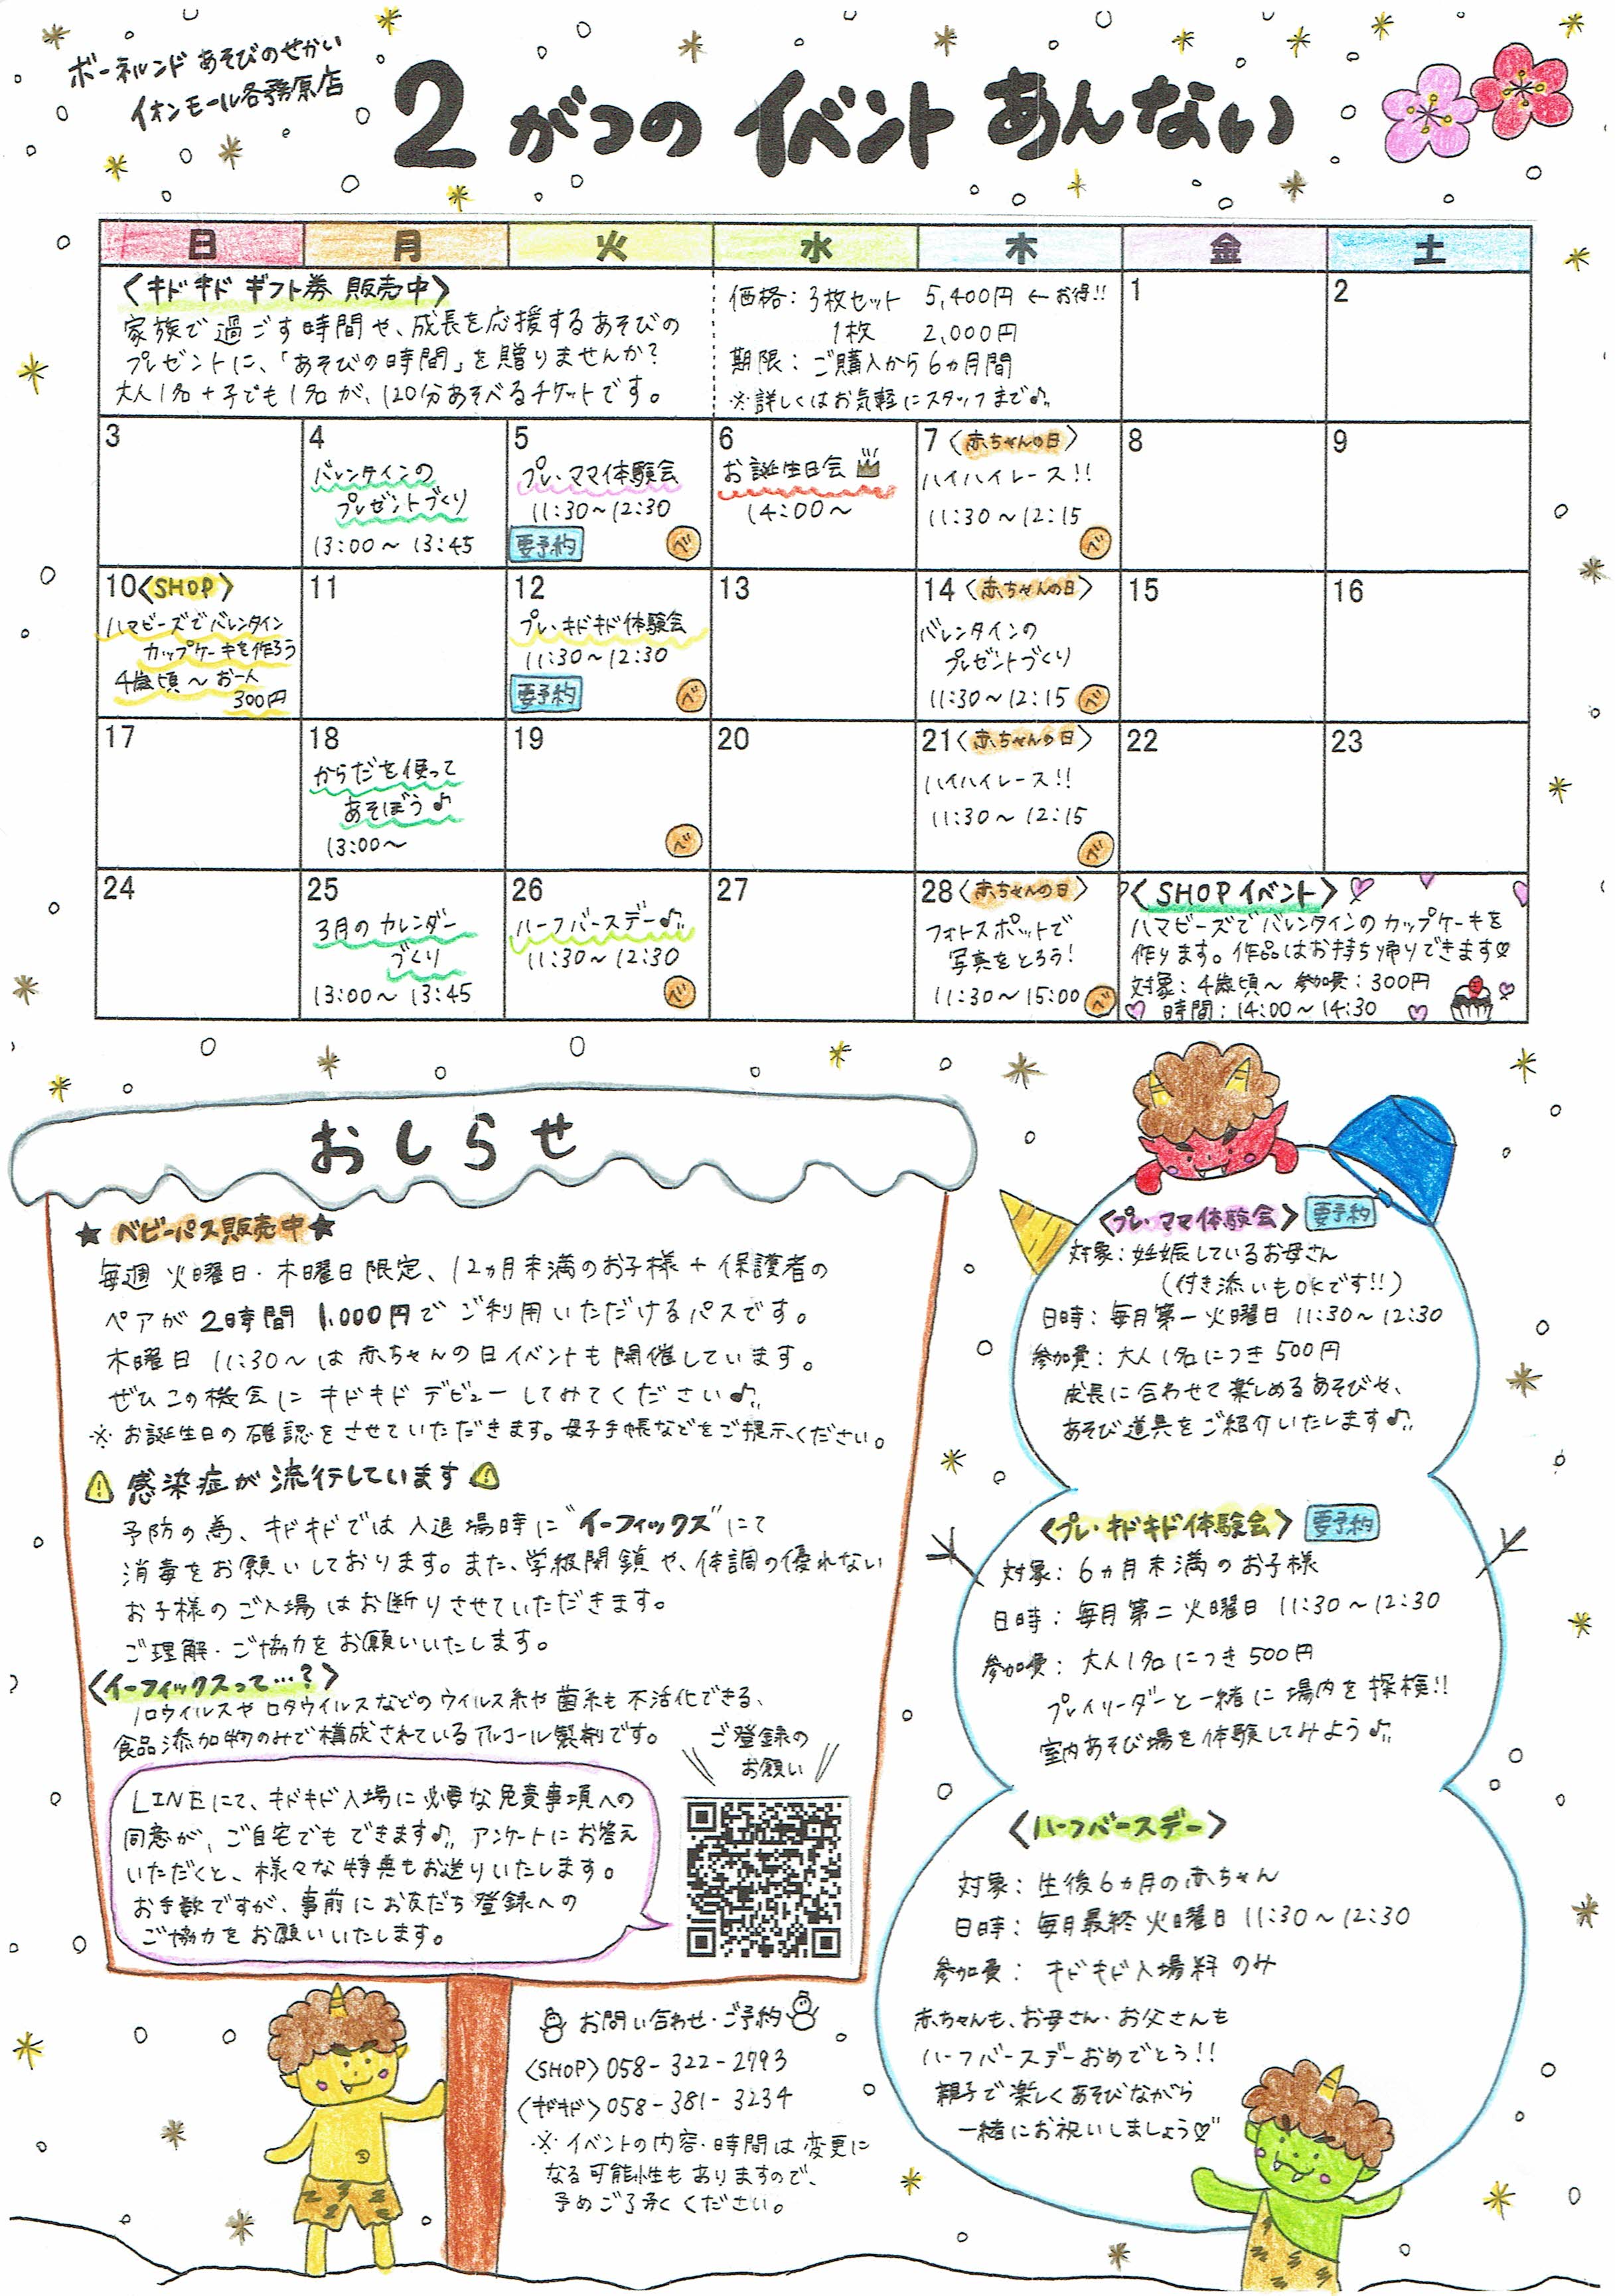 ボーネルンド あそびのせかい
イオンモール各務原店
2がつの イベント あんない
日 月 火 水 木 金 土
〈キドキド ギフト券 販売中〉
家族で過ごす時間や、成長を応援するあそびの
プレゼントに、「あそびの時間」を贈りませんか?
大人1名+子ども1名が、120分あそべるチケットです。
価格:3枚セット 5,400円 ←お得!!
1枚 2,000円
期限:ご購入から6ヵ月間
※詳しくはお気軽にスタッフまで♪
1
2
3
4
バレンタインの
プレゼントづくり
13:00〜13:45
5
プレ・ママ体験会
11:30〜12:30
要予約 ベ
6
お誕生日会
14:00〜
7〈赤ちゃんの日〉
ハイハイレース!!
11:30〜12:15
ベ
8
9
10〈SHOP〉
ハマビーズでバレンタイン
カップケーキを作ろう
4歳頃〜 お一人
300円
11
12
プレ・キドキド体験会
11:30〜12:30
要予約 ベ
13
14〈赤ちゃんの日〉
バレンタインの
プレゼントづくり
11:30〜12:15 ベ
15
16
17
18
からだを使って
あそぼう♪
13:00〜
19
ベ
20
21〈赤ちゃんの日〉
ハイハイレース!!
11:30〜12:15
ベ
22
23
24
25
3月のカレンダー
づくり
13:00〜13:45
26
ハーフバースデー♪
11:30〜12:30
ベ
27
28〈赤ちゃんの日〉
フォトスポットで
写真をとろう!
11:30〜15:00 ベ
〈SHOPイベント〉
ハマビーズでバレンタインのカップケーキを
作ります。作品はお持ち帰りできます♡
対象:4歳頃〜 参加費:300円
時間:14:00〜14:30
おしらせ
★ベビーパス販売中★
毎週 火曜日・木曜日限定、12ヵ月未満のお子様+保護者の
ペアが 2時間 1,000円で ご利用いただけるパスです。
木曜日 11:30〜は 赤ちゃんの日イベントも開催しています。
ぜひこの機会に キドキドデビューしてみてください♪
※お誕生日の確認をさせていただきます。母子手帳などをご提示ください。
感染症が流行しています
予防の為、キドキドでは入退場時に"イーフィックス"にて
消毒をお願いしております。また、学級閉鎖や、体調の優れない
お子様のご入場はお断りさせていただきます。
ご理解・ご協力をお願いいたします。
〈イーフィックスって…?〉
ノロウイルスやロタウイルスなどのウイルス系や菌系も不活化できる、
食品添加物のみで構成されているアルコール製剤です。
ご登録の
お願い
LINEにて、キドキド入場に必要な免責事項への
同意が、ご自宅でもできます♪ アンケートにお答え
いただくと、様々な特典もお送りいたします。
お手数ですが、事前にお友だち登録への
ご協力をお願いいたします。
お問い合わせ・ご予約
〈SHOP〉058-322-2793
〈キドキド〉058-381-3234
※イベントの内容・時間は変更に
なる可能性もありますので、
予めご了承ください。
〈プレ・ママ体験会〉要予約
対象:妊娠しているお母さん
(付き添いもOKです!!)
日時:毎月第一火曜日 11:30〜12:30
参加費:大人1名につき500円
成長に合わせて楽しめるあそびや、
あそび道具をご紹介いたします♪
〈プレ・キドキド体験会〉要予約
対象:6ヵ月未満のお子様
日時:毎月第二火曜日 11:30〜12:30
参加費:大人1名につき500円
プレイリーダーと一緒に場内を探検!!
室内あそび場を体験してみよう♪
〈ハーフバースデー〉
対象:生後6ヵ月の赤ちゃん
日時:毎月最終火曜日 11:30〜12:30
参加費:キドキド入場料のみ
赤ちゃんも、お母さん・お父さんも
ハーフバースデーおめでとう!!
親子で楽しくあそびながら
一緒にお祝いしましょう♡